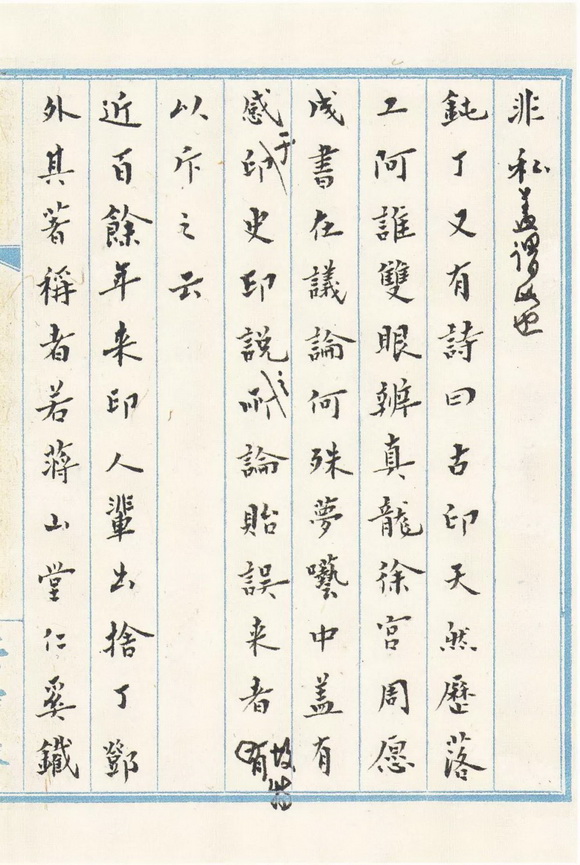 非私蓋謂此也
鈍丁又有詩曰古印天然歷落
工阿誰雙眼辨真龍徐官周應愿
成書在議論何殊夢囈中盖有
感于印史印説之所論貽誤来者故
以斥之云
近百餘年来印人輩出捨丁鄧
外其著稱者若蒋山堂仁奚鐡